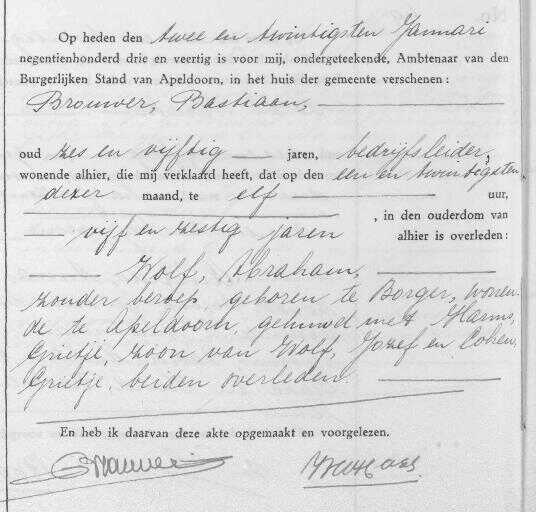 Op heden den twee en twintigsten Januari
negentienhonderd drie en veertig is voor mij, ondergeteekende, Ambtenaar van den
Burgerlijken Stand van Apeldoorn, in het huis der gemeente verschenen:
Brouwer, Bastiaan,
oud zes en vijftig jaren, bedrijfsleider,
wonende alhier, die mij verklaard heeft, dat op den een en twintigsten
dezer maand, te elf uur,
, in den ouderdom van
vijf en zestig jaren alhier is overleden:
Wolf, Abraham,
zonder beroep, geboren te Borger, wonen-
de te Apeldoorn, gehuwd met Harms,
Grietje, zoon van Wolf, Jozef en Cohen,
Grietje, beiden overleden.
En heb ik daarvan deze akte opgemaakt en voorgelezen.
Brouwer